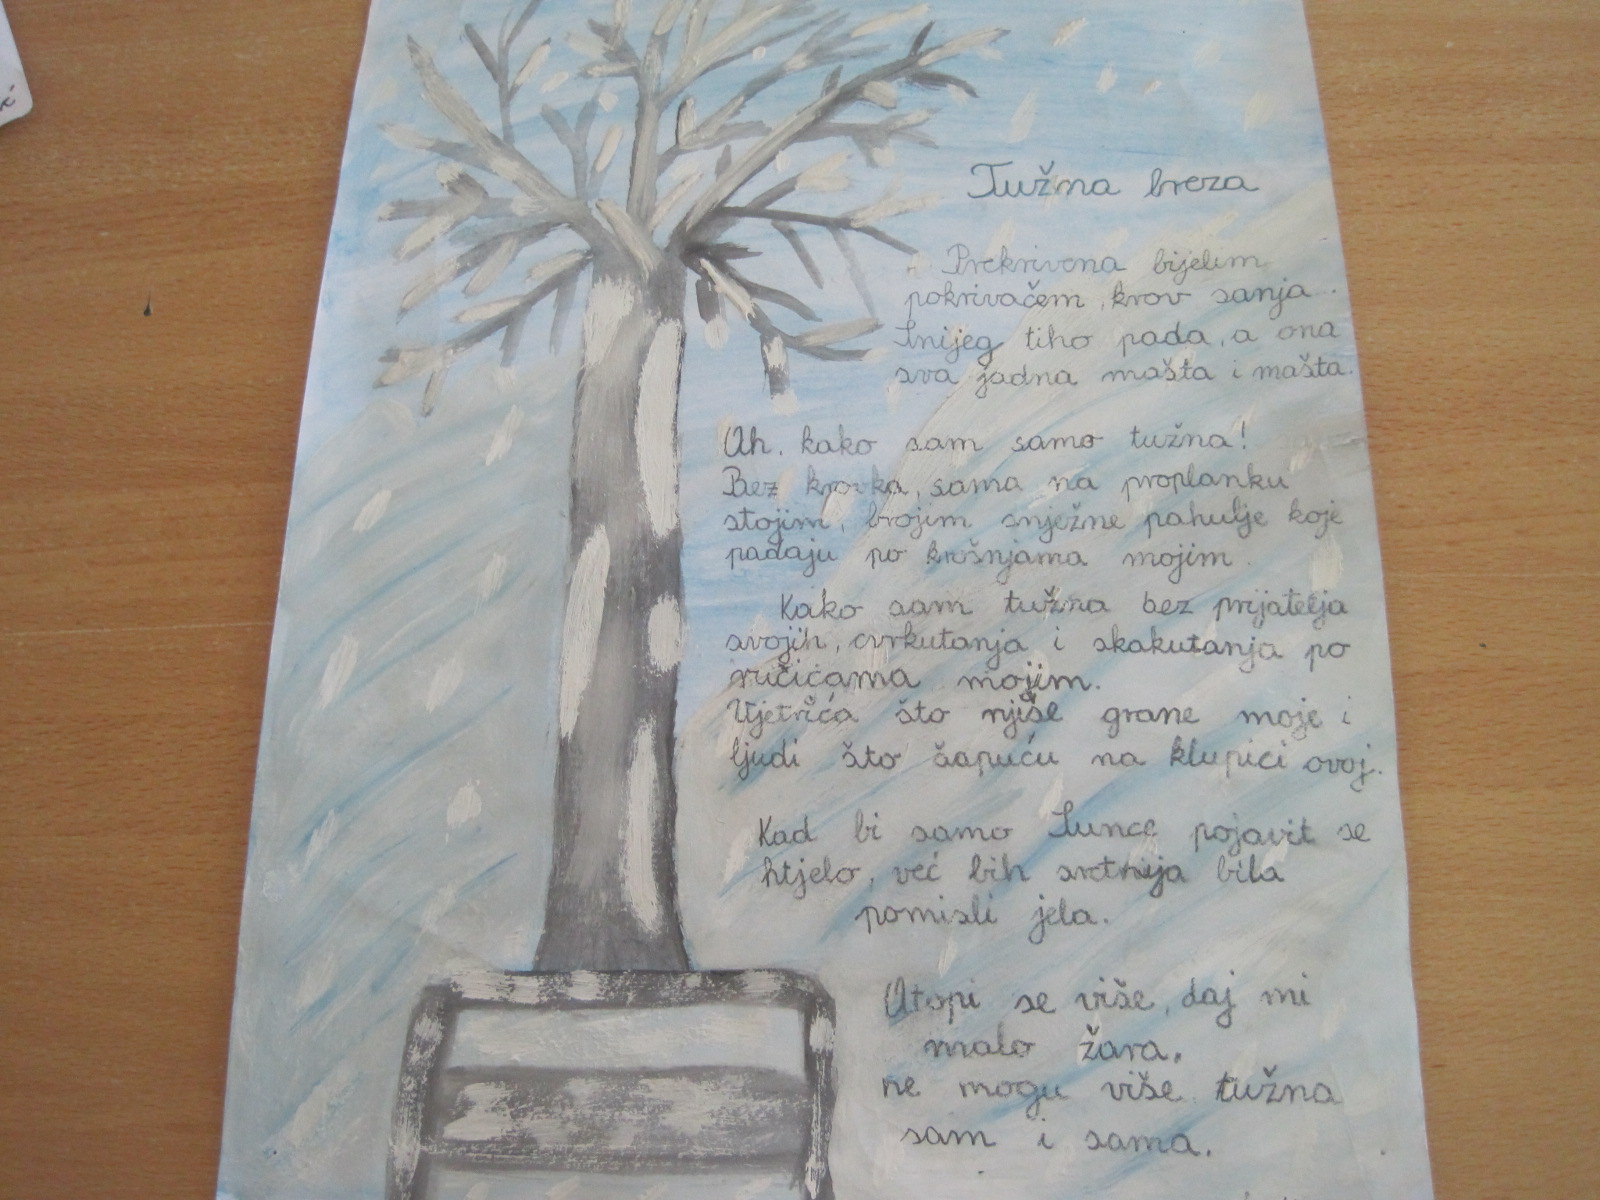 Tužna breza
Prekrivena bijelim
pokrivačem, krov sanja...
Snijeg tiho pada, a ona
sva jadna mašta i mašta.
Uh, kako sam samo tužna!
Bez krovka, sama na proplanku
stojim, brojim snježne pahulje koje
padaju po krošnjama mojim.
Kako sam tužna bez prijatelja
svojih, cvrkutanja i skakutanja po
ručicama mojim.
Vjetrića što njiše grane moje i
ljudi što šapuću na klupici ovoj.
Kad bi samo Sunce pojavit se
htjelo, već bih sretnija bila
pomisli jela.
Utopi se više, daj mi
malo žara,
ne mogu više tužna
sam i sama.